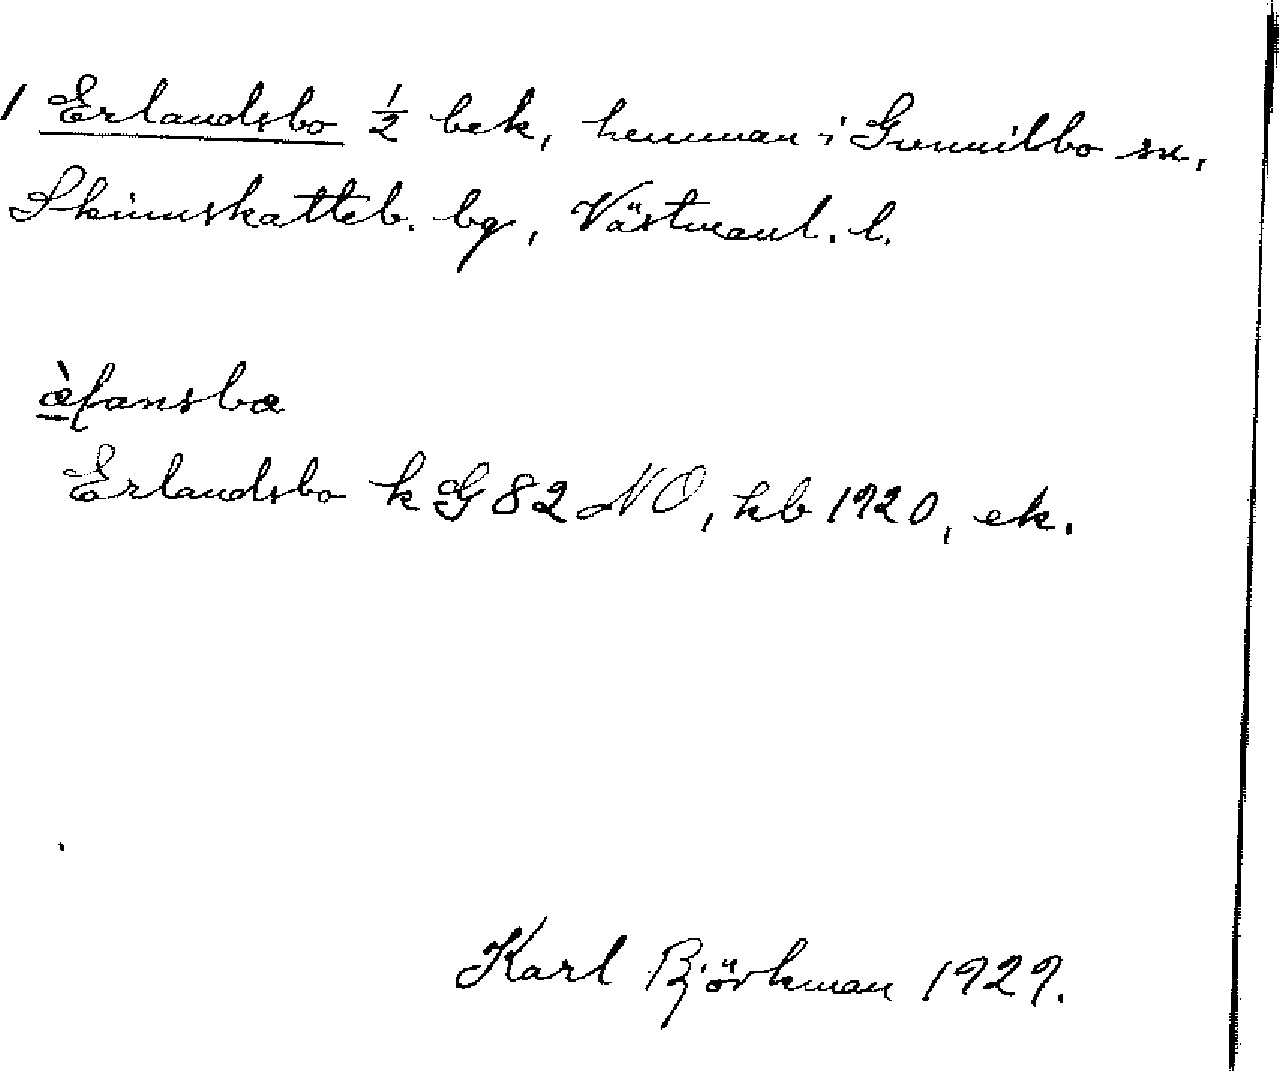 1 Erlandsbo ½ bek, hemman i Gunnilbo sn,
Skinnskatteb. bg, Västmanl. l.
æ̀ɭansbɷ
Erlandsbo k G 82 NO, kb 1920, ek.
Karl Björkman 1929.